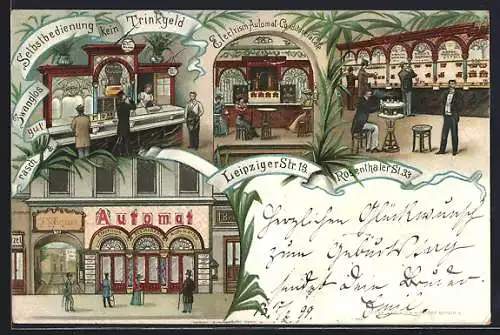 Selbstbedienung kein Trinkgeld
rasch gut Zwanglos
Electrisch Automat.
Leipziger Str. 13.
Rosenthaler St. 33
Automat
Herzlichen Glückwunsch
zum Geburtstag
sendet dein Bruder
Emil
99